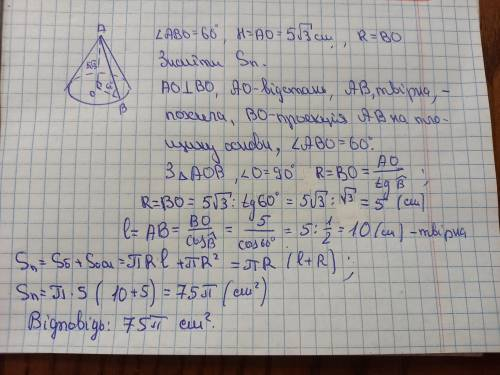 A
5√3
R
60°
O
B
∠ABO=60°, H=AO=5√3 см, R=BO
Знайти Sп.
AO⊥BO, AO-відстань, AB, твірна, -
похила, BO-проекція AB на пло-
щину основи, ∠ABO=60°.
З △AOB, ∠O=90° R=BO= AO/tg B̂ ;
R=BO= 5√3 : tg60° = 5√3 : √3 = 5 (см)
l=AB= BO/cos B̂ = 5/cos60° = 5: 1/2 = 10 (см) -твірна
Sп= Sб + Sосн = πRl + πR² = πR (l+R) ;
Sп= π·5 ( 10+5) = 75π (см²)
Відповідь: 75π см².